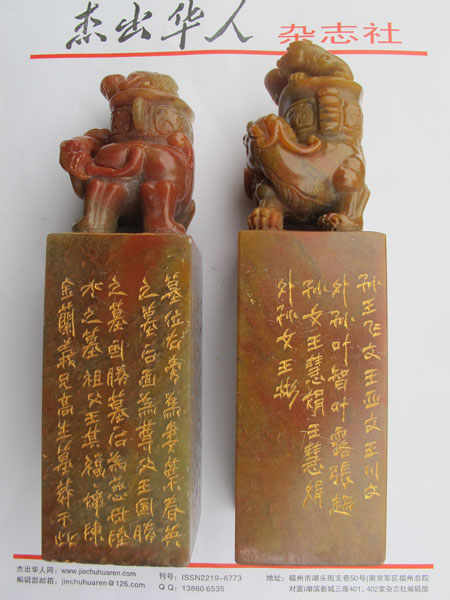 杰出华人 杂志社
墓位右旁為妻葉春英
之墓右面為尊父王國勝
之墓國勝墓右為慈母
水之墓祖父王其
金蘭義兄高生墓葬于
孙王飞文王亚文王川文
外孙叶智叶露張超
孙女王慧娟王慧
外孙女王彬
杰出华人网：www.jiechuhuaren.com 刊号：ISSN2219-6773 地址：福州市湖头街支巷50号(南京军区福州总院
编辑部邮箱：jiechuhuaren@126.com Q Q：13860 6535 对面)湖滨新城三座401、402室杂志社编辑部